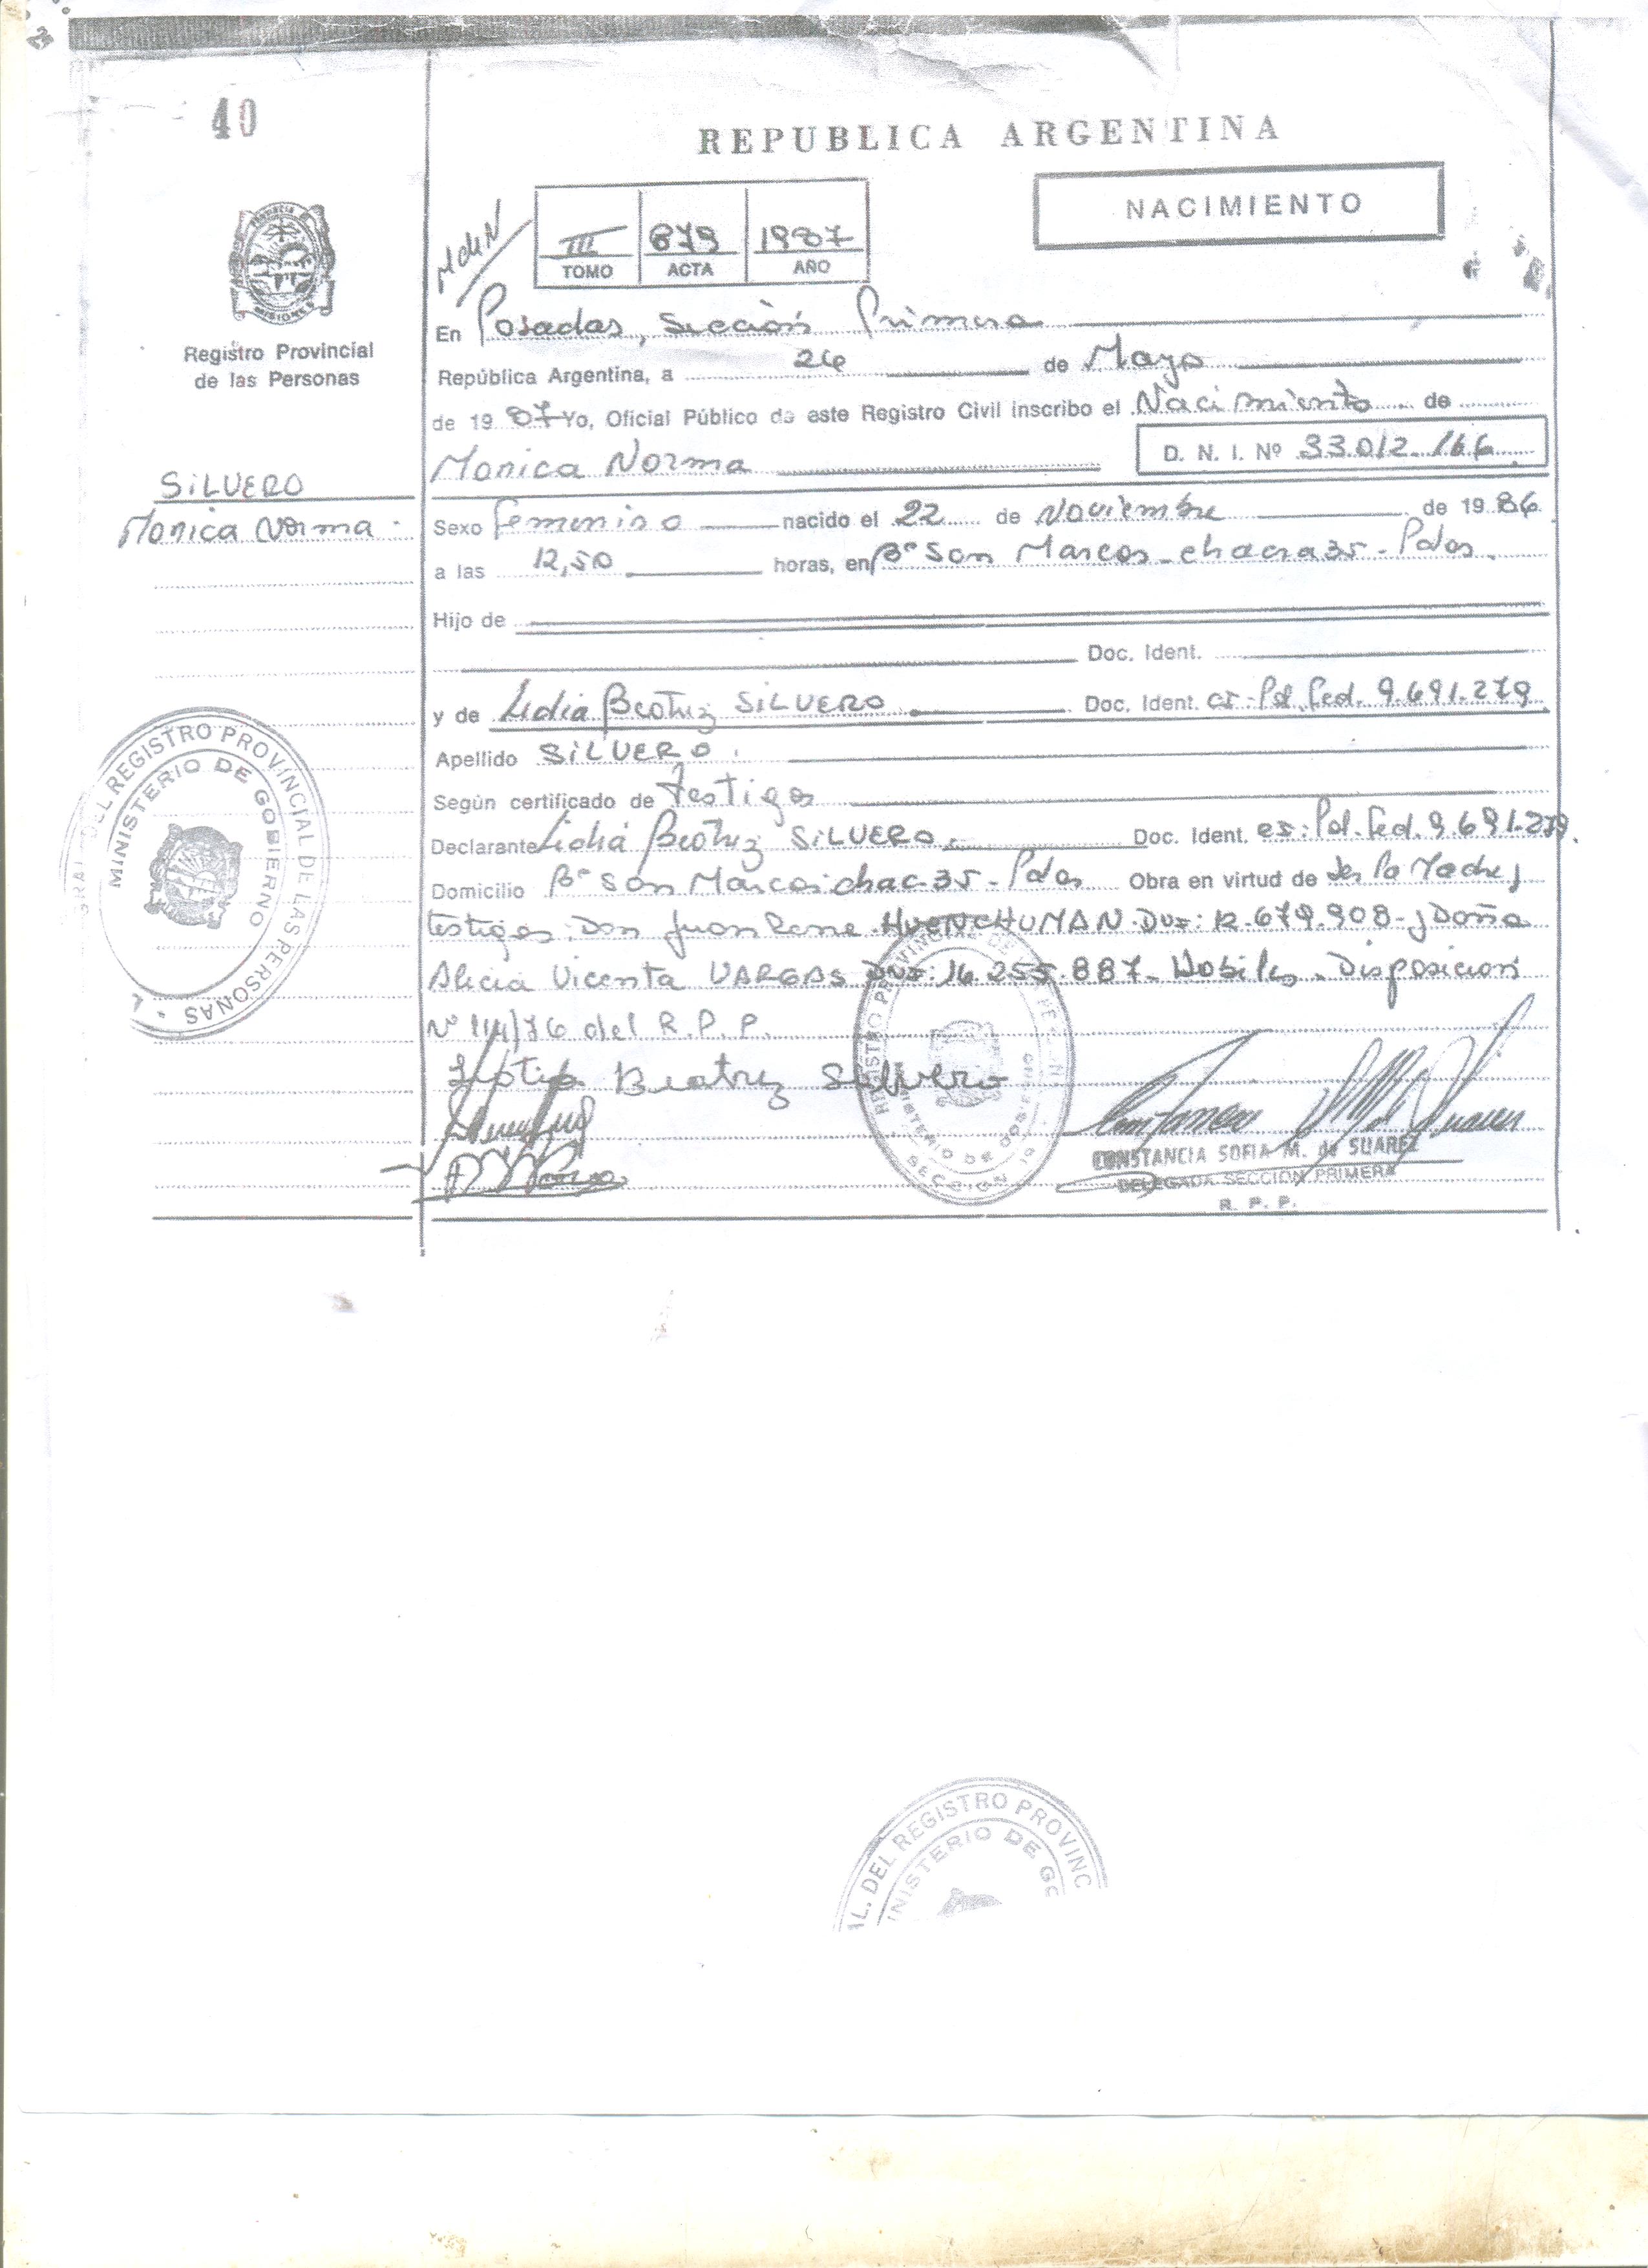 40
REPUBLICA ARGENTINA
NACIMIENTO
III 879 1987
TOMO ACTA AÑO
PROVINCIA
MISIONES
Registro Provincial
de las Personas
SILVERO
Monica Norma
En Posadas, Sección Primera
República Argentina, a 26 de Mayo
de 1987 Yo, Oficial Público de este Registro Civil inscribo el Nacimiento de
Monica Norma D. N. I. Nº 33.012.166
Sexo femenino nacido el 22 de Noviembre de 1986
a las 12,50 horas, en Bº San Marcos - chacra 35 - Pdas.
Hijo de
Doc. Ident.
y de Lidia Beatriz SILVERO Doc. Ident. Pol. Fed. 9.691.279
Apellido SILVERO.
Según certificado de Testigos
Declarante Lidia Beatriz SILVERO. Doc. Ident. Pol. Fed. 9.691.279.
Domicilio Bº San Marcos chac. 35 - Pdas Obra en virtud de ser la Madre y
testigos: Don Juan Rene HUENCHUMAN - DNI: 12.679.908 - y Doña
Alicia Vicenta VARGAS DNI: 16.255.887 - Habiles - Disposicion
Nº 114/76 del R.P.P.
Beatriz Silvero
CONSTANCIA SOFIA M. de SUAREZ
DELEGADA SECCION PRIMERA
R. P. P.
GRAL. DEL REGISTRO PROVINCIAL DE LAS PERSONAS
MINISTERIO DE GOBIERNO
REGISTRO PROVINCIAL DE
MINISTERIO DE GOBIERNO
SECCION 1a
AL. DEL REGISTRO PROVINC
NISTERIO DE GO